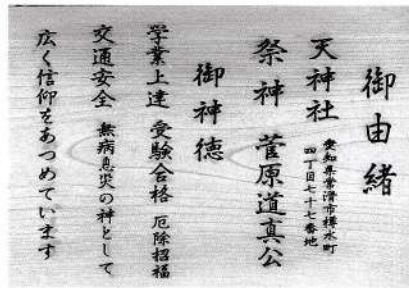 御由緒
天神社 愛知県常滑市樽水町
四丁目七十七番地
祭神 菅原道真公
御神徳
学業上達 受験合格 厄除招福
交通安全 無病息災の神として
広く信仰をあつめています